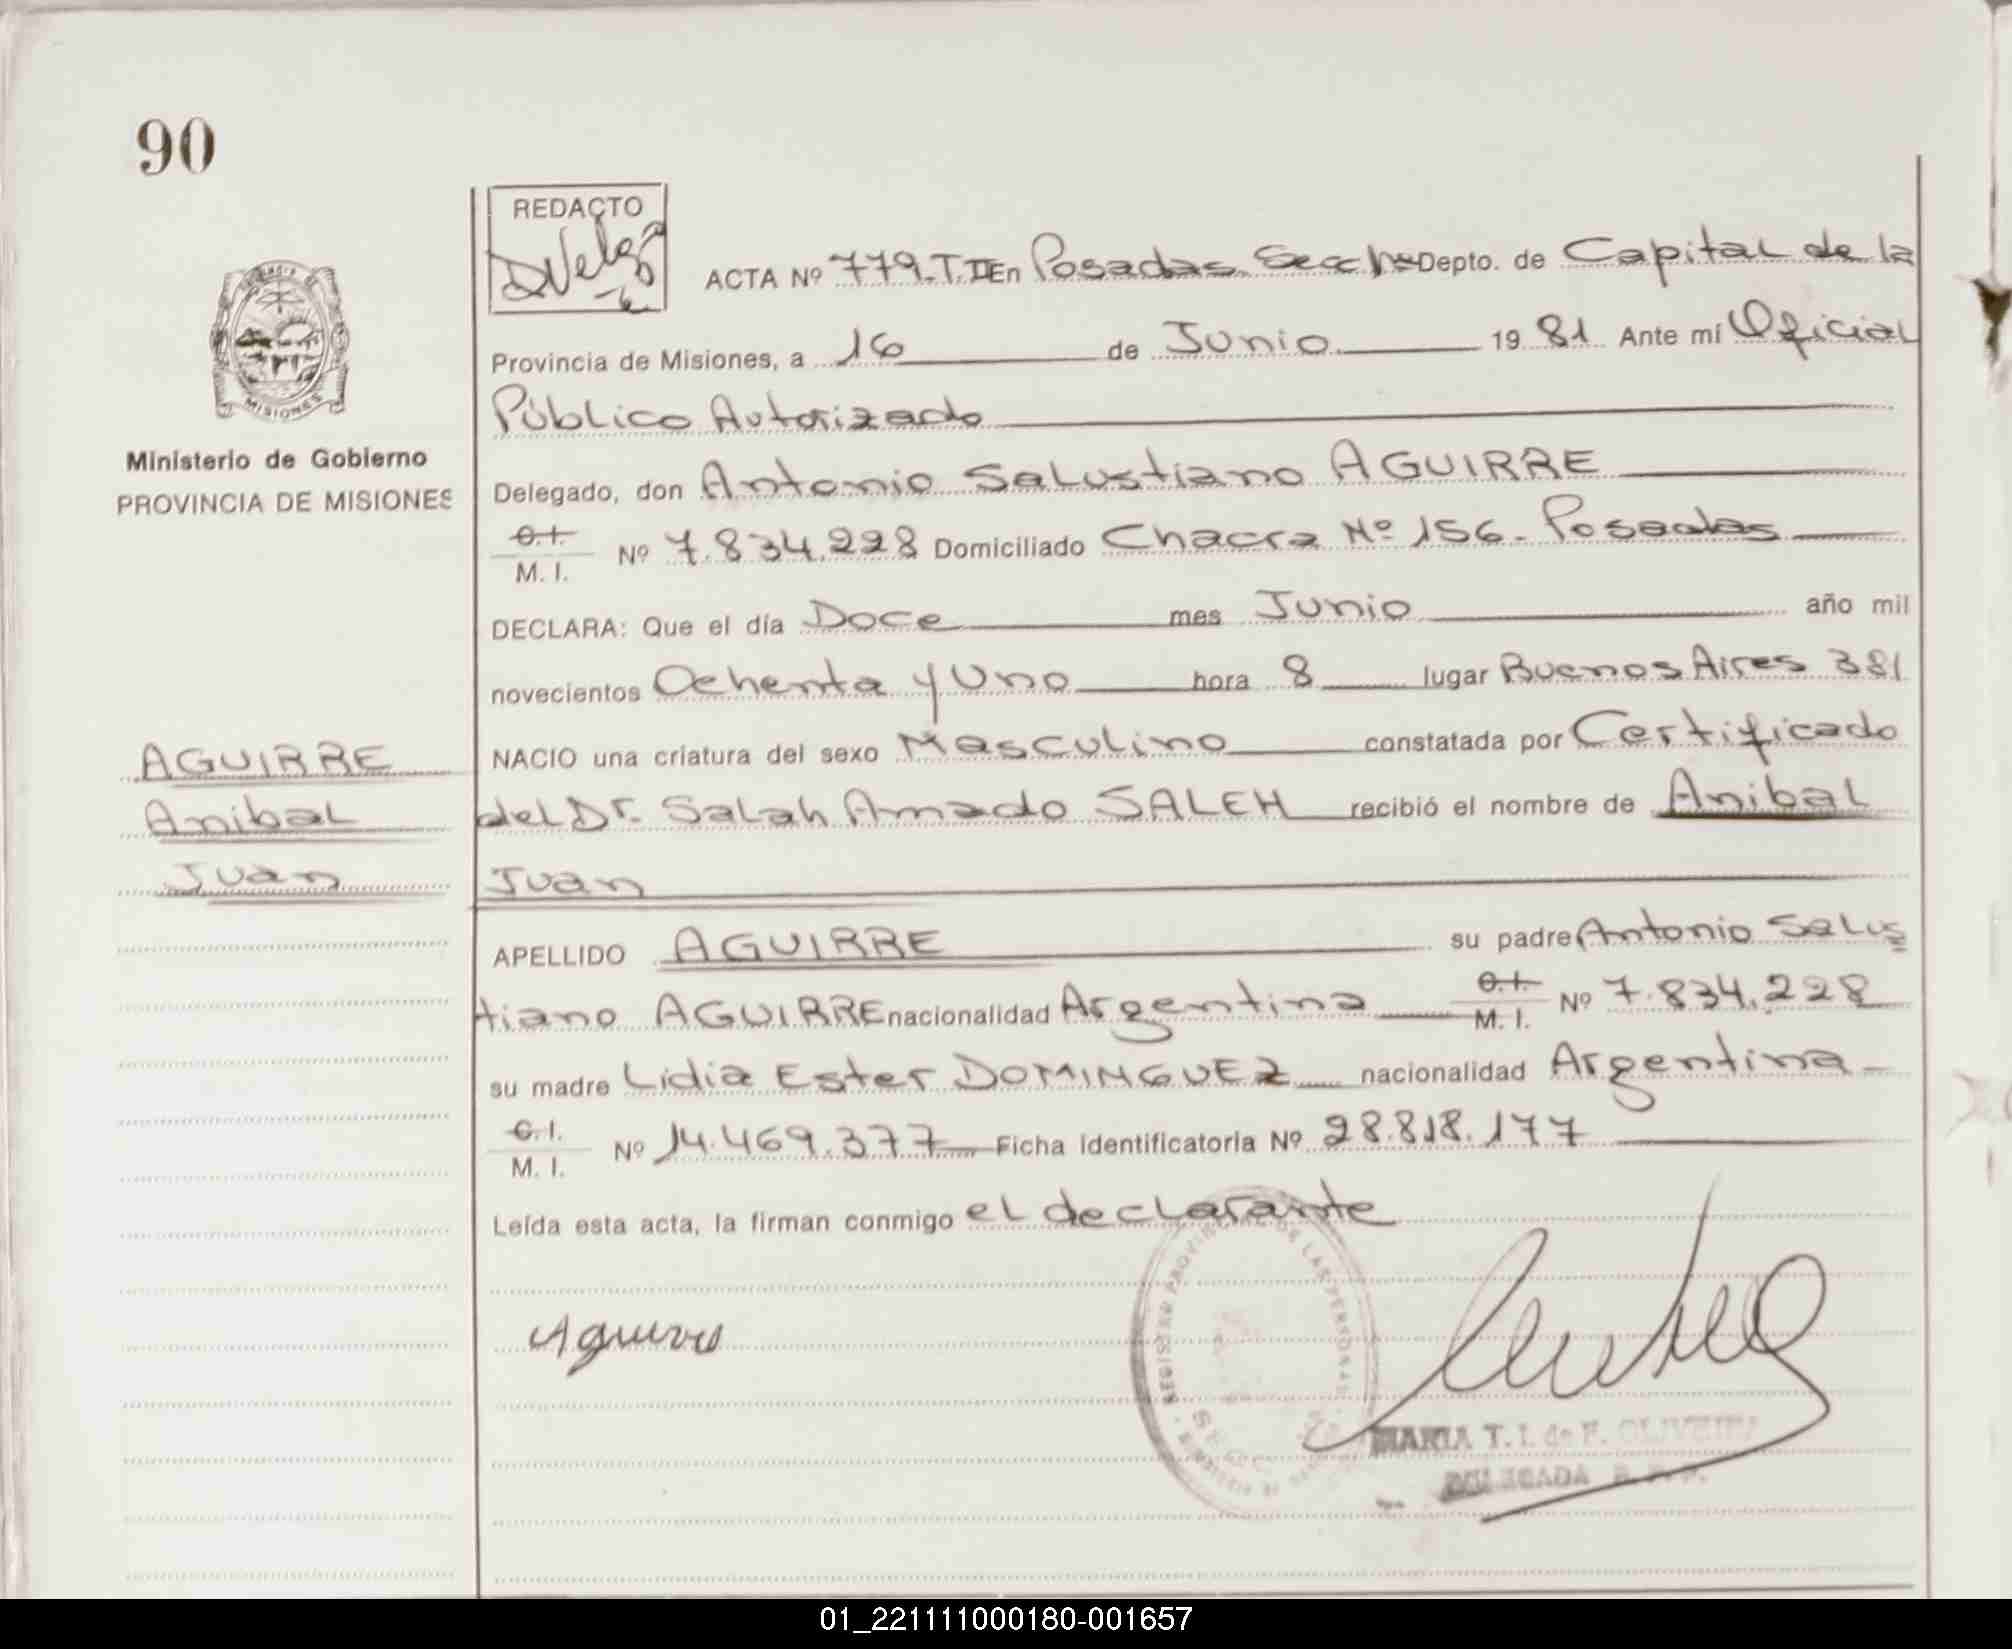 90
REDACTO
ACTA Nº 779.T.II En Posadas Depto. de Capital de la
Provincia de Misiones, a 16 de Junio 1981 Ante mí Oficial
Público Autorizado
MISIONES
Ministerio de Gobierno
PROVINCIA DE MISIONES
Delegado, don Antonio Salustiano AGUIRRE
C.I.
M. I. Nº 7.834.228 Domiciliado Chacra Nº 156 - Posadas
DECLARA: Que el día Doce mes Junio año mil
novecientos Ochenta y Uno hora 8 lugar Buenos Aires 381
NACIO una criatura del sexo Masculino constatada por Certificado
del Dr. Salah Amado SALEH recibió el nombre de Anibal
Juan
AGUIRRE
Anibal
Juan
APELLIDO AGUIRRE su padre Antonio Salus
tiano AGUIRRE nacionalidad Argentina C.I. M. I. Nº 7.834.228
su madre Lidia Ester DOMINGUEZ nacionalidad Argentina
C.I.
M. I. Nº 14.469.377 Ficha Identificatoria Nº 28.818.177
Leída esta acta, la firman conmigo el declarante
REGISTRO PROVINCIAL DE LAS PERSONAS
MARIA T. I. de F. OLIVEIRA
DELEGADA R. P. P.
01_221111000180-001657